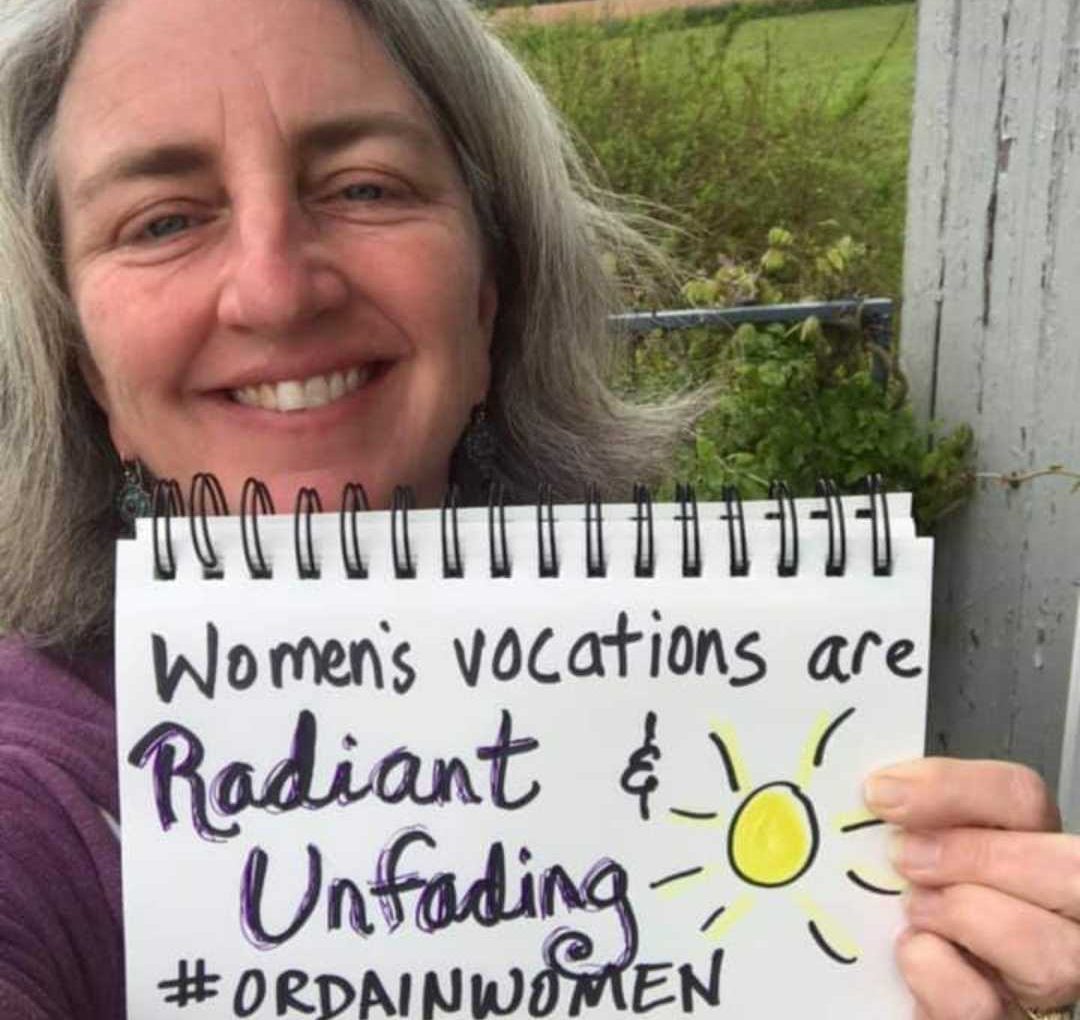 Women's vocations are
Radiant &
Unfading
#ORDAINWOMEN